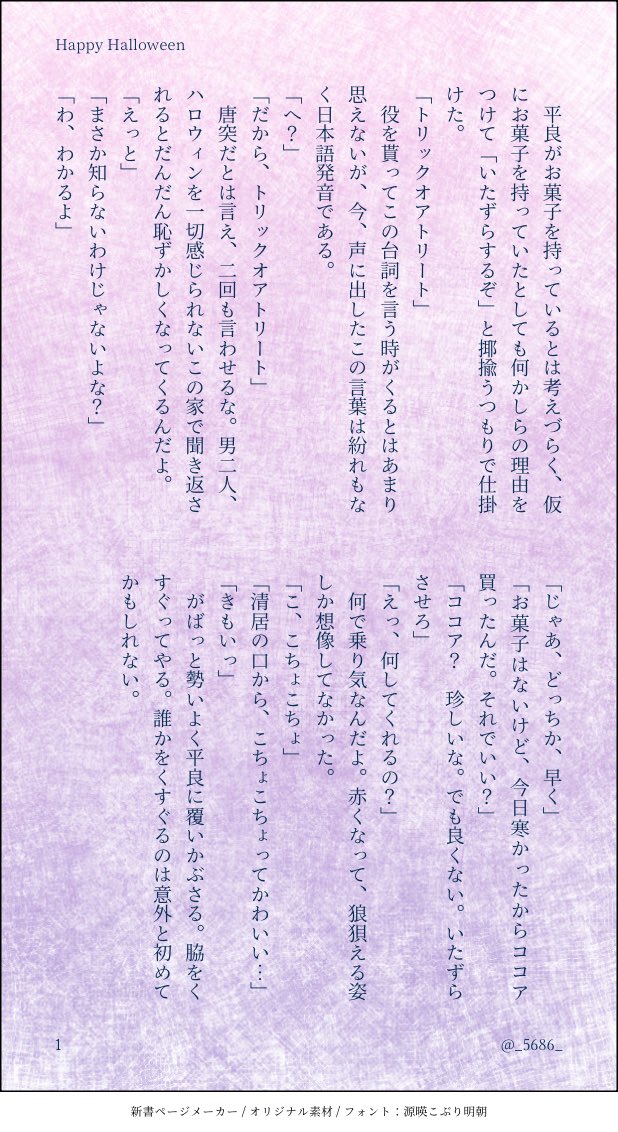 Happy Halloween
　平良がお菓子を持っているとは考えづらく、仮
にお菓子を持っていたとしても何かしらの理由を
つけて「いたずらするぞ」と揶揄うつもりで仕掛
けた。
「トリックオアトリート」
　役を貰ってこの台詞を言う時がくるとはあまり
思えないが、今、声に出したこの言葉は紛れもな
く日本語発音である。
「へ？」
「だから、トリックオアトリート」
　唐突だとは言え、二回も言わせるな。男二人、
ハロウィンを一切感じられないこの家で聞き返さ
れるとだんだん恥ずかしくなってくるんだよ。
「えっと」
「まさか知らないわけじゃないよな？」
「わ、わかるよ」
「じゃあ、どっちか、早く」
「お菓子はないけど、今日寒かったからココア
買ったんだ。それでいい？」
「ココア？　珍しいな。でも良くない。いたずら
させろ」
「えっ、何してくれるの？」
　何で乗り気なんだよ。赤くなって、狼狽える姿
しか想像してなかった。
「こ、こちょこちょ」
「清居の口から、こちょこちょってかわいい…」
「きもいっ」
　がばっと勢いよく平良に覆いかぶさる。脇をく
すぐってやる。誰かをくすぐるのは意外と初めて
かもしれない。
1
@_5686_
新書ページメーカー / オリジナル素材 / フォント：源暎こぶり明朝